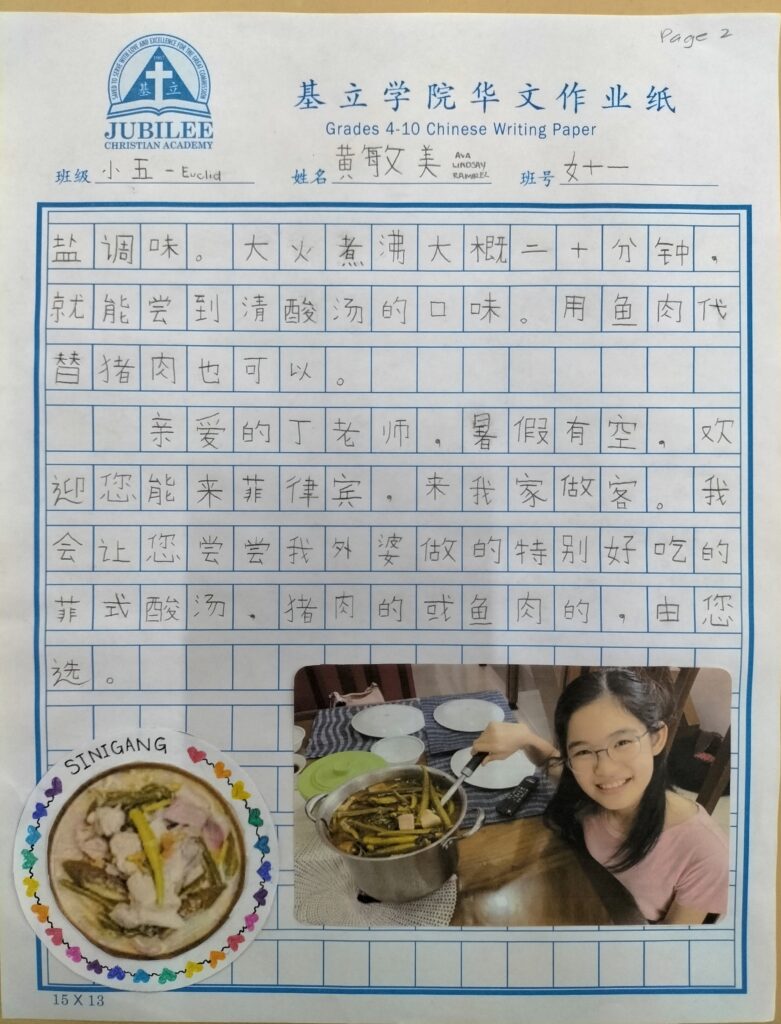 Page 2
SAVED TO SERVE WITH LOVE AND EXCELLENCE FOR THE GREAT COMMISSION
基 立
JUBILEE
CHRISTIAN ACADEMY
基立学院华文作业纸
Grades 4-10 Chinese Writing Paper
班级 小五 - Euclid 姓名 黄敏美 AVA LINDSAY RAMIREZ 班号 女十一
盐调味。大火煮沸大概二十分钟，
就能尝到清酸汤的口味。用鱼肉代
替猪肉也可以。
亲爱的丁老师，暑假有空，欢
迎您能来菲律宾，来我家做客。我
会让您尝尝我外婆做的特别好吃的
菲式酸汤，猪肉的或鱼肉的，由您
选。
SINIGANG
15 X 13